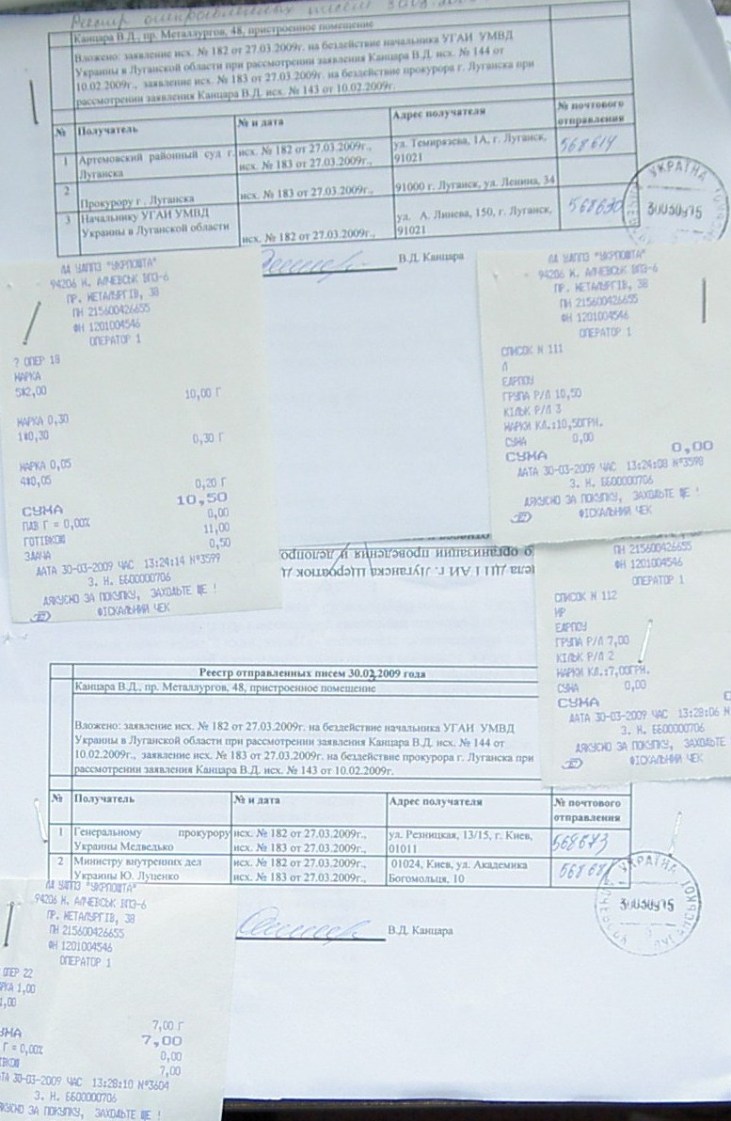 Реестр отправленных писем
Канцара В.Д., пр. Металлургов, 48, пристроенное помещение
Вложено: заявление исх. № 182 от 27.03.2009г. на бездействие начальника УГАИ УМВД
Украины в Луганской области при рассмотрении заявления Канцара В.Д. исх. № 144 от
10.02.2009г., заявление исх. № 183 от 27.03.2009г. на бездействие прокурора г. Луганска при
рассмотрении заявления Канцара В.Д. исх. № 143 от 10.02.2009г.
№ Получатель № и дата Адрес получателя № почтового отправления
1 Артемовский районный суд г. Луганска исх. № 182 от 27.03.2009г., исх. № 183 от 27.03.2009г., ул. Темирязева, 1А, г. Луганск, 91021 568614
2 Прокурору г. Луганска исх. № 183 от 27.03.2009г., 91000 г. Луганск, ул. Ленина, 34
3 Начальнику УГАИ УМВД Украины в Луганской области исх. № 182 от 27.03.2009г., ул. А. Линева, 150, г. Луганск, 91021 568630
УКРАЇНА
В.Д. Канцара
ЛА УДППЗ "УКРПОШТА"
94206 М. АЛЧЕВСЬК ВПЗ-6
ПР. МЕТАЛУРГІВ, 38
ПН 215600426655
ФН 1201004546
ОПЕРАТОР 1
? ОПЕР 18
МАРКА
5@2,00
10,00 Г
МАРКА 0,30
1@0,30
0,30 Г
МАРКА 0,05
4@0,05
0,20 Г
СУМА 10,50
ПДВ Г = 0,00% 0,00
ГОТІВКОЮ 11,00
ЗДАЧА 0,50
ДАТА 30-03-2009 ЧАС 13:24:14 №3599
З. Н. ББ00000706
ДЯКУЄМО ЗА ПОКУПКУ, ЗАХОДЬТЕ ЩЕ !
ФІСКАЛЬНИЙ ЧЕК
ЛА УДППЗ "УКРПОШТА"
94206 М. АЛЧЕВСЬК ВПЗ-6
ПР. МЕТАЛУРГІВ, 38
ПН 215600426655
ФН 1201004546
ОПЕРАТОР 1
СПИСОК N 111
Л
ЕДРПОУ
ГРУПА Р/Л 10,50
КІЛЬК Р/Л 3
МАРКИ КЛ.:10,50ГРН.
СУМА 0,00
СУМА 0,00
ДАТА 30-03-2009 ЧАС 13:24:08 №3598
З. Н. ББ00000706
ДЯКУЄМО ЗА ПОКУПКУ, ЗАХОДЬТЕ ЩЕ !
ФІСКАЛЬНИЙ ЧЕК
о организации проведения и делопро
г. Луганска
ПН 215600426655
ФН 1201004546
ОПЕРАТОР 1
СПИСОК N 112
МР
ЕДРПОУ
ГРУПА Р/Л 7,00
КІЛЬК Р/Л 2
МАРКИ КЛ.:7,00ГРН.
СУМА 0,00
СУМА
ДАТА 30-03-2009 ЧАС 13:28:06
З. Н. ББ00000706
ДЯКУЄМО ЗА ПОКУПКУ, ЗАХОДЬТЕ
ФІСКАЛЬНИЙ ЧЕК
Реестр отправленных писем 30.03.2009 года
Канцара В.Д., пр. Металлургов, 48, пристроенное помещение
Вложено: заявление исх. № 182 от 27.03.2009г. на бездействие начальника УГАИ УМВД
Украины в Луганской области при рассмотрении заявления Канцара В.Д. исх. № 144 от
10.02.2009г., заявление исх. № 183 от 27.03.2009г. на бездействие прокурора г. Луганска при
рассмотрении заявления Канцара В.Д. исх. № 143 от 10.02.2009г.
№ Получатель № и дата Адрес получателя № почтового отправления
1 Генеральному прокурору Украины Медведько исх. № 182 от 27.03.2009г., исх. № 183 от 27.03.2009г., ул. Резницкая, 13/15, г. Киев, 01011 568673
2 Министру внутренних дел Украины Ю. Луценко исх. № 182 от 27.03.2009г., исх. № 183 от 27.03.2009г., 01024, Киев, ул. Академика Богомольца, 10
УКРАЇНА
В.Д. Канцара
ЛА УДППЗ "УКРПОШТА"
94206 М. АЛЧЕВСЬК ВПЗ-6
ПР. МЕТАЛУРГІВ, 38
ПН 215600426655
ФН 1201004546
ОПЕРАТОР 1
ОПЕР 22
РКА 1,00
1,00
7,00 Г
УМА 7,00
Г = 0,00% 0,00
ТІВКОЮ 7,00
АТА 30-03-2009 ЧАС 13:28:10 №3604
З. Н. ББ00000706
ЯКУЄМО ЗА ПОКУПКУ, ЗАХОДЬТЕ ЩЕ !